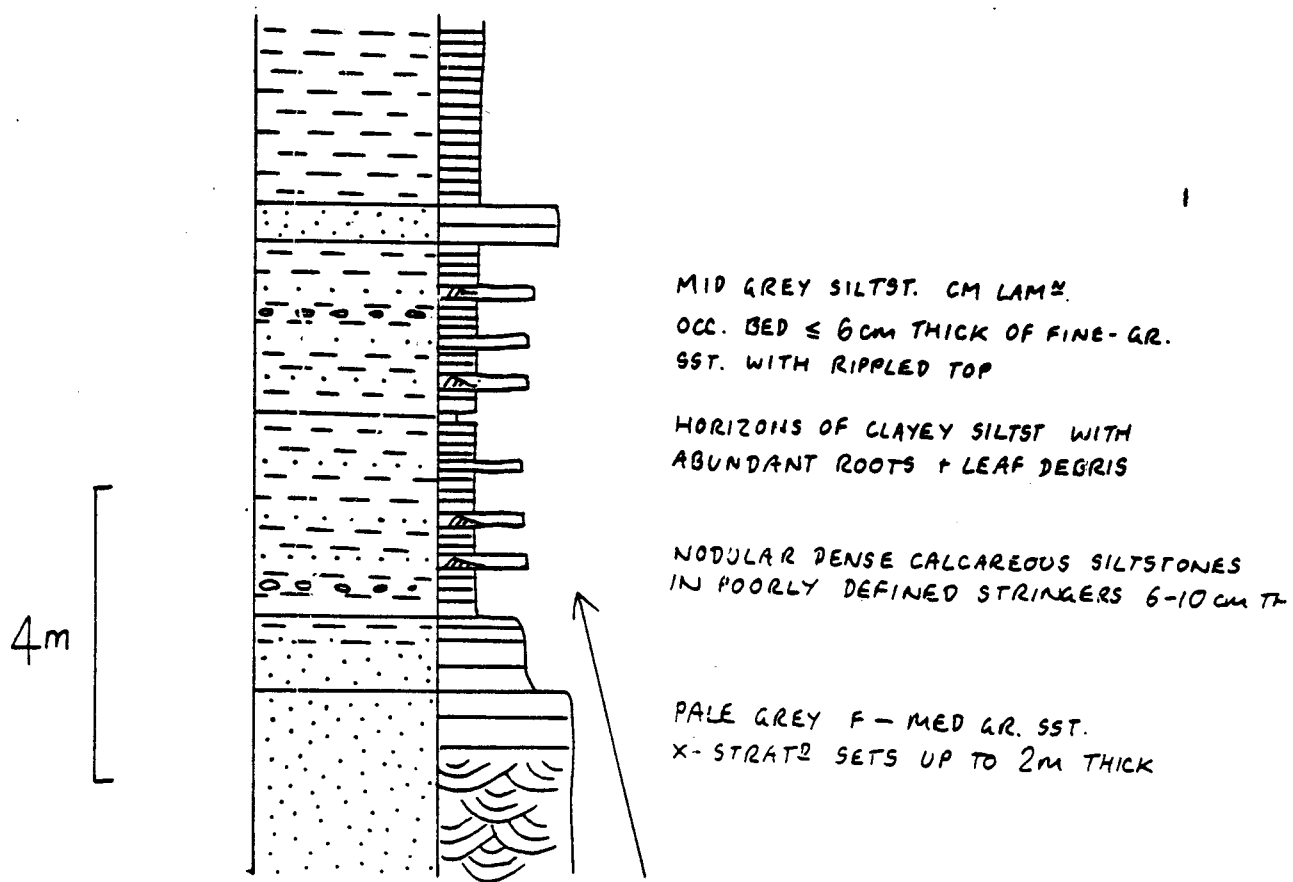 MID GREY SILTST. CM LAMN.
OCC. BED ≤ 6CM THICK OF FINE-GR.
SST. WITH RIPPLED TOP
HORIZONS OF CLAYEY SILTST WITH
ABUNDANT ROOTS + LEAF DEBRIS
NODULAR DENSE CALCAREOUS SILTSTONES
IN POORLY DEFINED STRINGERS 6-10 CM TH
4m
PALE GREY F - MED GR. SST.
X-STRATN SETS UP TO 2M THICK